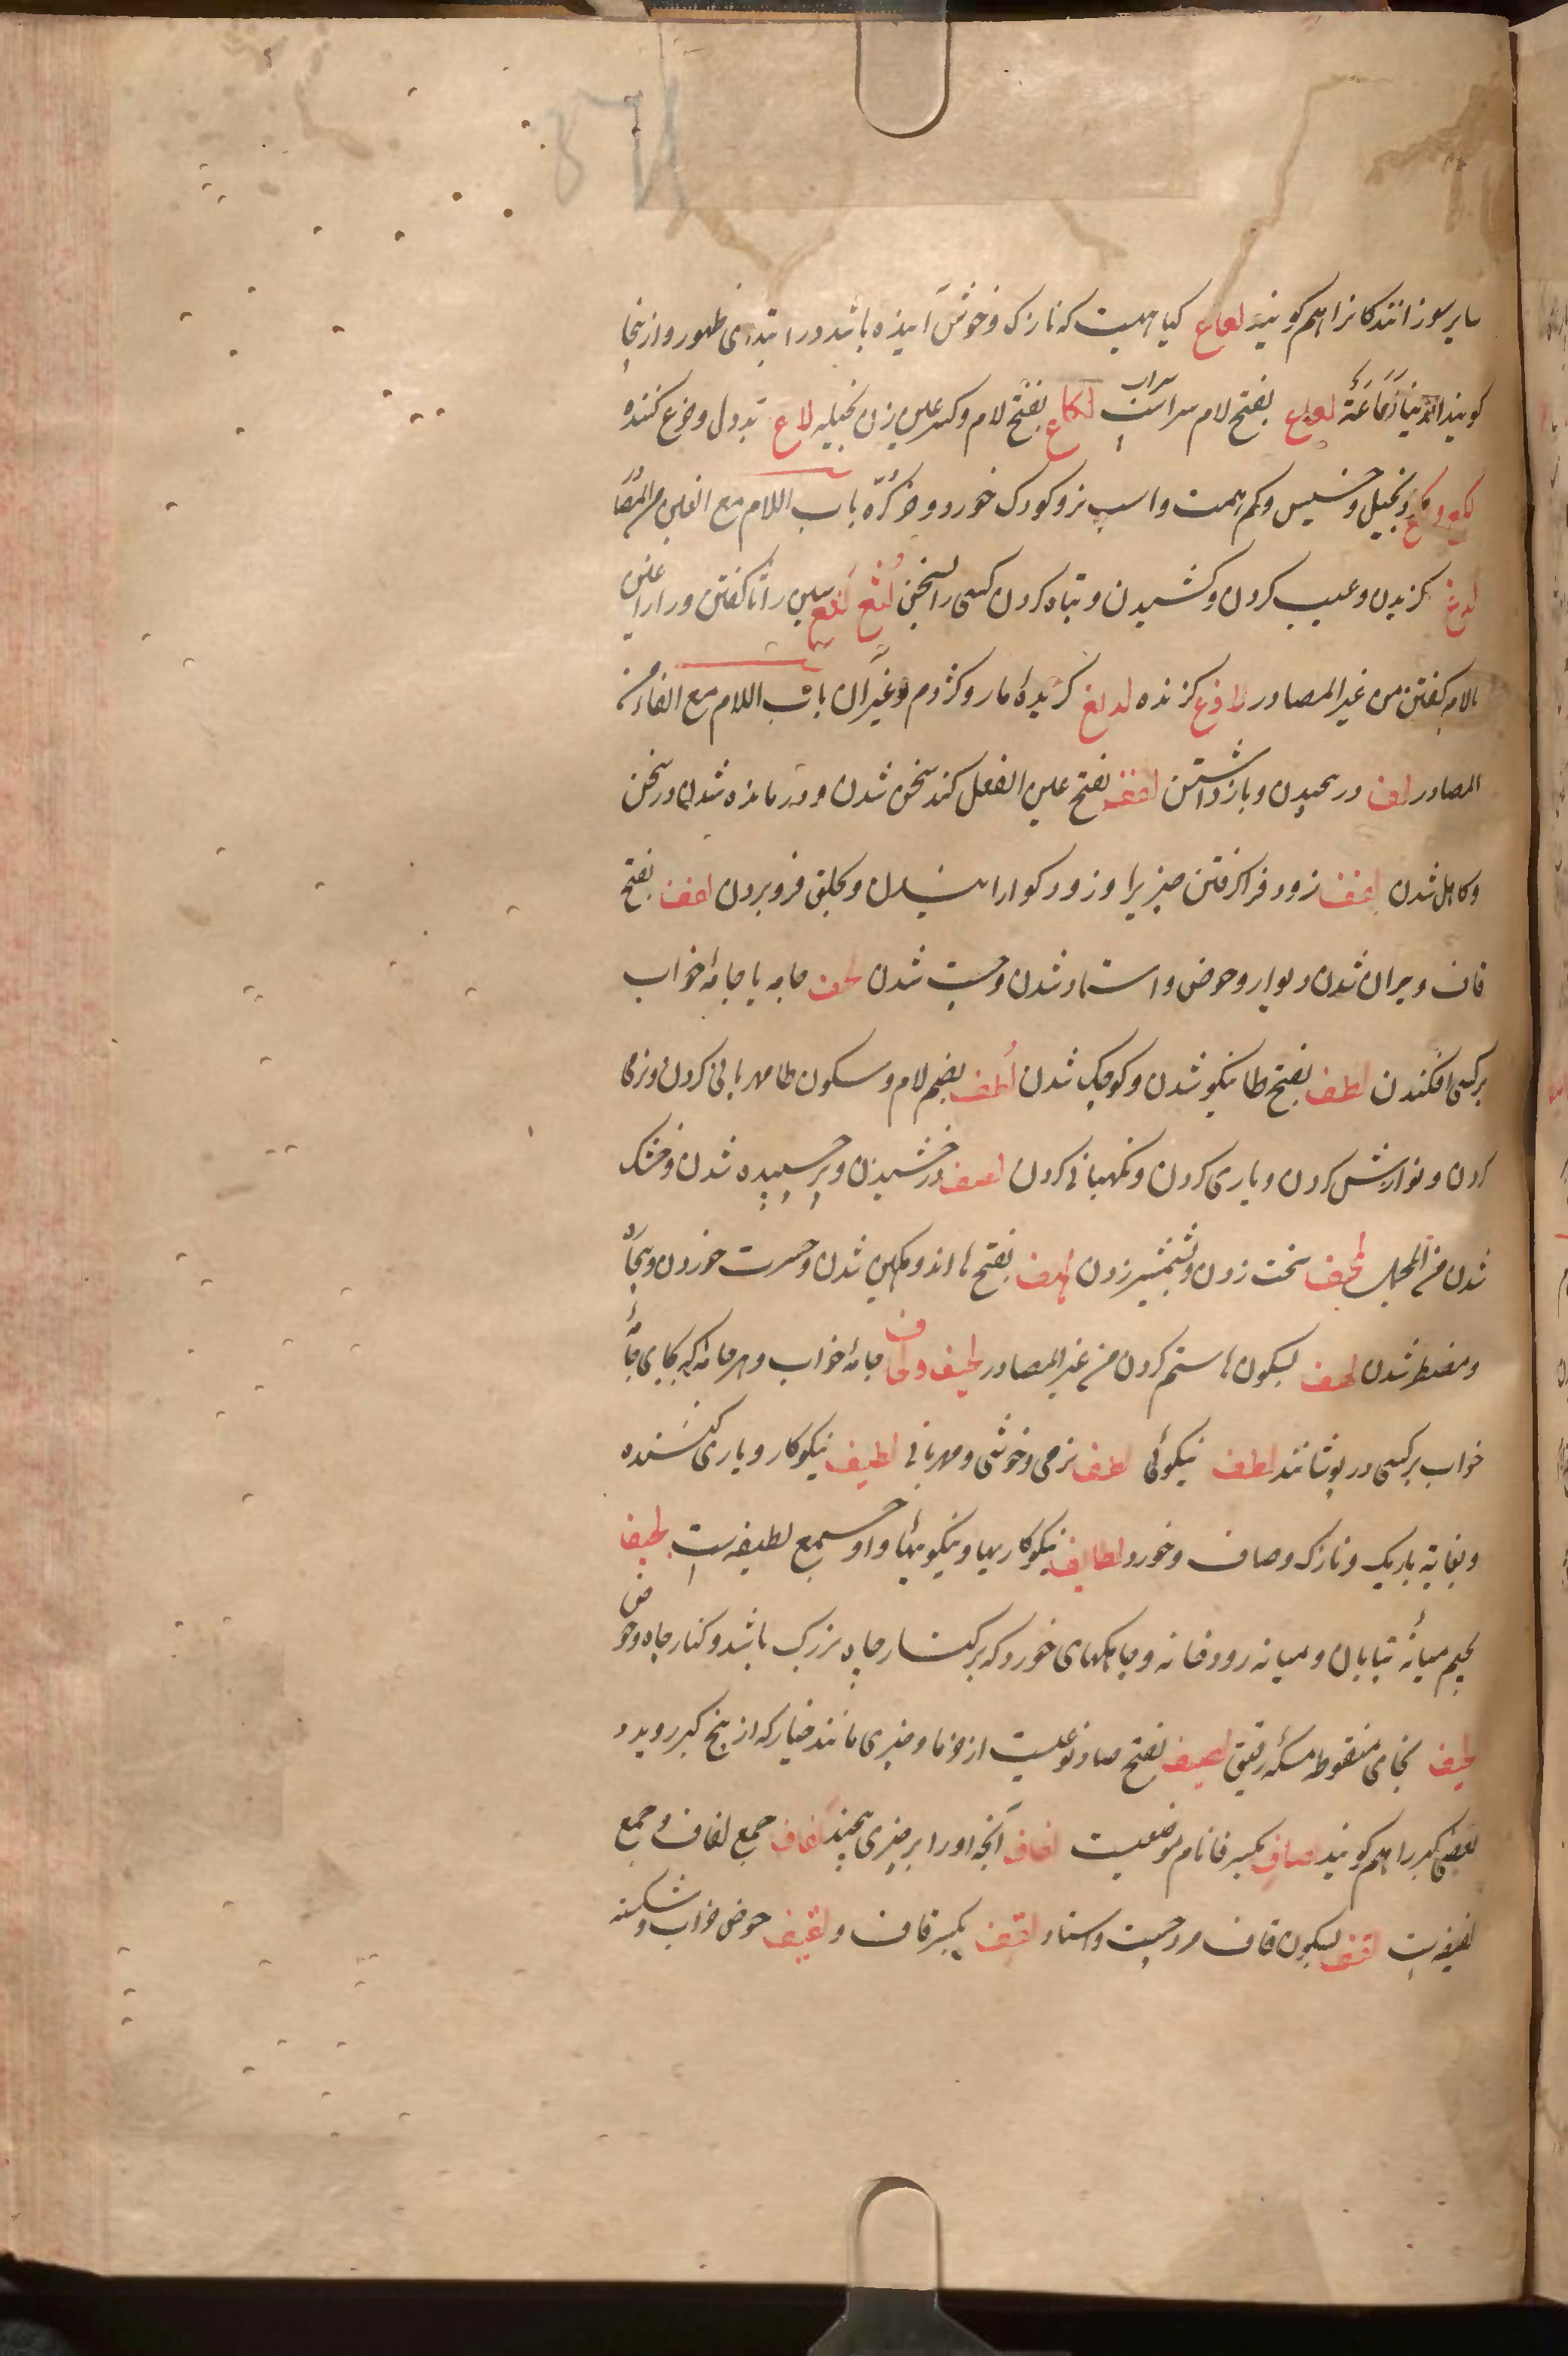 سایر سوزانندکانرا هم کویند لعاع کیاهیست که نازک و خوش آینده باشد در ابتدای ظهور و از ینجا
کویند الدنیا لعاعة لعلع بفتح لام سرابست لکاع بفتح لام و کسر عین زن بخیله لاع بددل و جزع کننده
لکع و بخیل و خسیس و کم همت و اسب نر و کودک خورد و خر کره باب اللام مع الغین من المصادر
لدغ کزیدن و عیب کردن و کشیدن و تباه کردن کسی را بسخن لثغ لثغ سین را ثا کفتن و را را غین
یا لام کفتن من غیر المصادر لادغ کزنده لدیغ کزیدۀ مار و کژدم و غیر آن باب اللام مع الفاء من
المصادر لف در پیچیدن و بازداشتن لفف بفتح عین الفعل کند سخن شدن و درمانده شدن در سخن
و کاهل شدن لقف زود فرا کرفتن چیزیرا و زود کوارانیدن و بحلق فرو بردن لقف بفتح
قاف ویران شدن دیوار و حوض و استاد شدن و چست شدن لحف جامه یا جامۀ خواب
بر کسی افکندن لطف بفتح طا نیکو شدن و کوچک شدن لطف بضم لام و سکون طا مهربانی کردن و نرمی
کردن و نوازش کردن و یاری کردن و نکهبانی کردن لصف درخشیدن و بر چسپیده شدن و خشک
شدن من المجمل لخف سخت زدن و بشمشیر زدن لهف بفتح ها اندوهکین شدن و حسرت خوردن و بیچاره
و مضطر شدن لهف بسکون ها ستم کردن من غیر المصادر لحیف و لحاف جامۀ خواب و هر جامۀ که بجای جامۀ
خواب بر کسی در پوشانند لطف نیکوئی لطف نرمی و خوشی و مهربانی لطیف نیکوکار و یاری کننده
و بغایة باریک و نازک و صاف و خورد لطایف نیکوکاریها و نیکوییها و او جمع لطیفه است لجیف
بجیم میانۀ بیابان و میانه رودخانه و چاهکهای خورد که بر کنار چاه بزرک باشد و کنار چاه و حوض
لخیف بخای منقوطه مسکۀ رقیق لصیف بفتح صاد نوعیست از خرما و چیزی مانند خیار که از بیخ کبر روید و
بعضی کبر را هم کویند لصاف بکسر فا نام موضعیست لفاف آنچه او را بر چیزی پیچند لفاف جمع لفاف و جمع
لفیفه است لقف بسکون قاف مرد چست و استاد لقف بکسر قاف و لقیف حوض خراب و شکسته